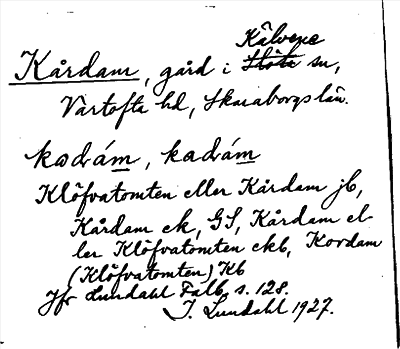 Kälvene
Kårdam, gård i Slöta sn,
Vartofta hd, Skaraborgs län.
kadám, kadám
Klöfvatomten eller Kårdam jb,
Kårdam ek, GS, Kårdam el-
ler Klöfvatomten ekb, Kordam
(Klöfvatomten) Kb
Jfr Lundahl Falb. s. 128.
I. Lundahl 1927.